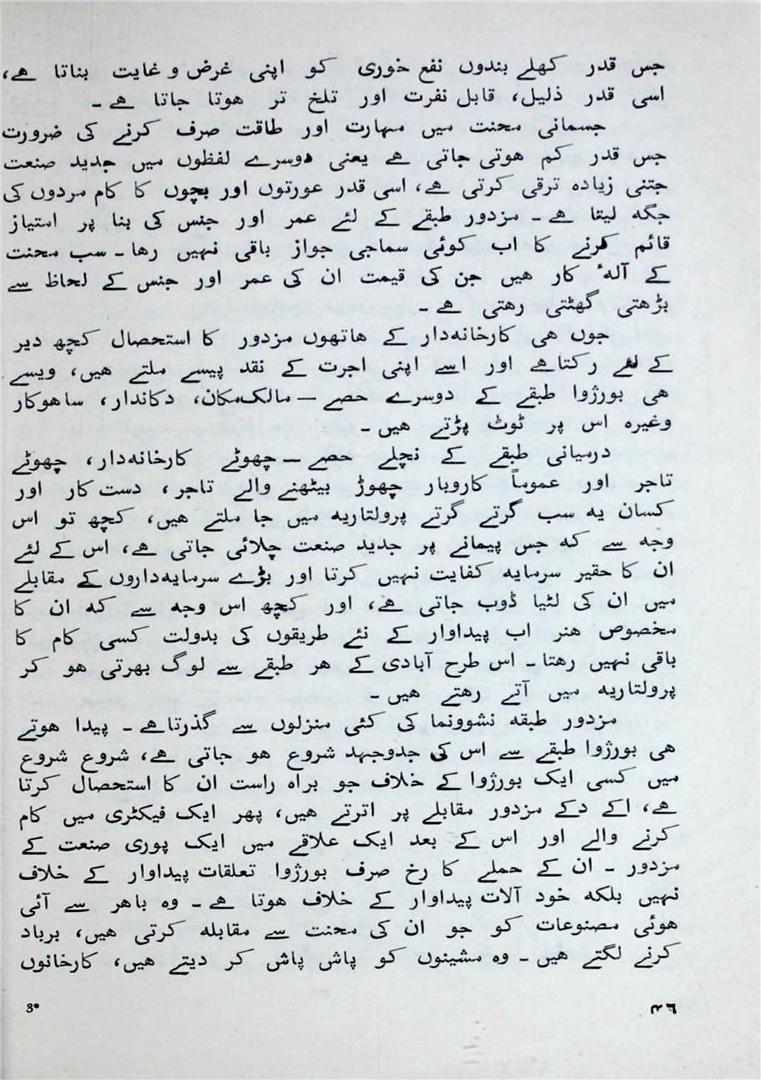 جس قدر کھلے بندوں نفع خوری کو اپنی غرض و غایت بناتا ہے،
اسی قدر ذلیل، قابل نفرت اور تلخ تر ہوتا جاتا ہے۔
جسمانی محنت میں مہارت اور طاقت صرف کرنے کی ضرورت
جس قدر کم ہوتی جاتی ہے یعنی دوسرے لفظوں میں جدید صنعت
جتنی زیادہ ترقی کرتی ہے، اسی قدر عورتوں اور بچوں کا کام مردوں کی
جگہ لیتا ہے۔ مزدور طبقے کے لئے عمر اور جنس کی بنا پر امتیاز
قائم کرنے کا اب کوئی سماجی جواز باقی نہیں رہا۔ سب محنت
کے آلۂ کار ہیں جن کی قیمت ان کی عمر اور جنس کے لحاظ سے
بڑھتی گھٹتی رہتی ہے۔
جوں ہی کارخانہ‌دار کے ہاتھوں مزدور کا استحصال کچھ دیر
کے لئے رکتاہے اور اسے اپنی اجرت کے نقد پیسے ملتے ہیں، ویسے
ہی بورژوا طبقے کے دوسرے حصے — مالک‌مکان، دکاندار، ساہوکار
وغیرہ اس پر ٹوٹ پڑتے ہیں۔
درمیانی طبقے کے نچلے حصے — چھوٹے کارخانہ‌دار، چھوٹے
تاجر اور عموماً کاروبار چھوڑ بیٹھنے والے تاجر، دست کار اور
کسان یہ سب گرتے گرتے پرولتاریہ میں جا ملتے ہیں، کچھ تو اس
وجہ سے کہ جس پیمانے پر جدید صنعت چلائی جاتی ہے، اس کے لئے
ان کا حقیر سرمایہ کفایت نہیں کرتا اور بڑے سرمایہ‌داروں کے مقابلے
میں ان کی لٹیا ڈوب جاتی ہے، اور کچھ اس وجہ سے کہ ان کا
مخصوص ہنر اب پیداوار کے نئے طریقوں کی بدولت کسی کام کا
باقی نہیں رہتا۔ اس طرح آبادی کے ہر طبقے سے لوگ بھرتی ہو کر
پرولتاریہ میں آتے رہتے ہیں۔
مزدور طبقہ نشوونما کی کئی منزلوں سے گذرتاہے۔ پیدا ہوتے
ہی بورژوا طبقے سے اس کی جدوجہد شروع ہو جاتی ہے، شروع شروع
میں کسی ایک بورژوا کے خلاف جو براہ راست ان کا استحصال کرتا
ہے، اکے دکے مزدور مقابلے پر اترتے ہیں، پھر ایک فیکٹری میں کام
کرنے والے اور اس کے بعد ایک علاقے میں ایک پوری صنعت کے
مزدور۔ ان کے حملے کا رخ صرف بورژوا تعلقات پیداوار کے خلاف
نہیں بلکہ خود آلات پیداوار کے خلاف ہوتا ہے۔ وہ باہر سے آئی
ہوئی مصنوعات کو جو ان کی محنت سے مقابلہ کرتی ہیں، برباد
کرنے لگتے ہیں۔ وہ مشینوں کو پاش پاش کر دیتے ہیں، کارخانوں
3*